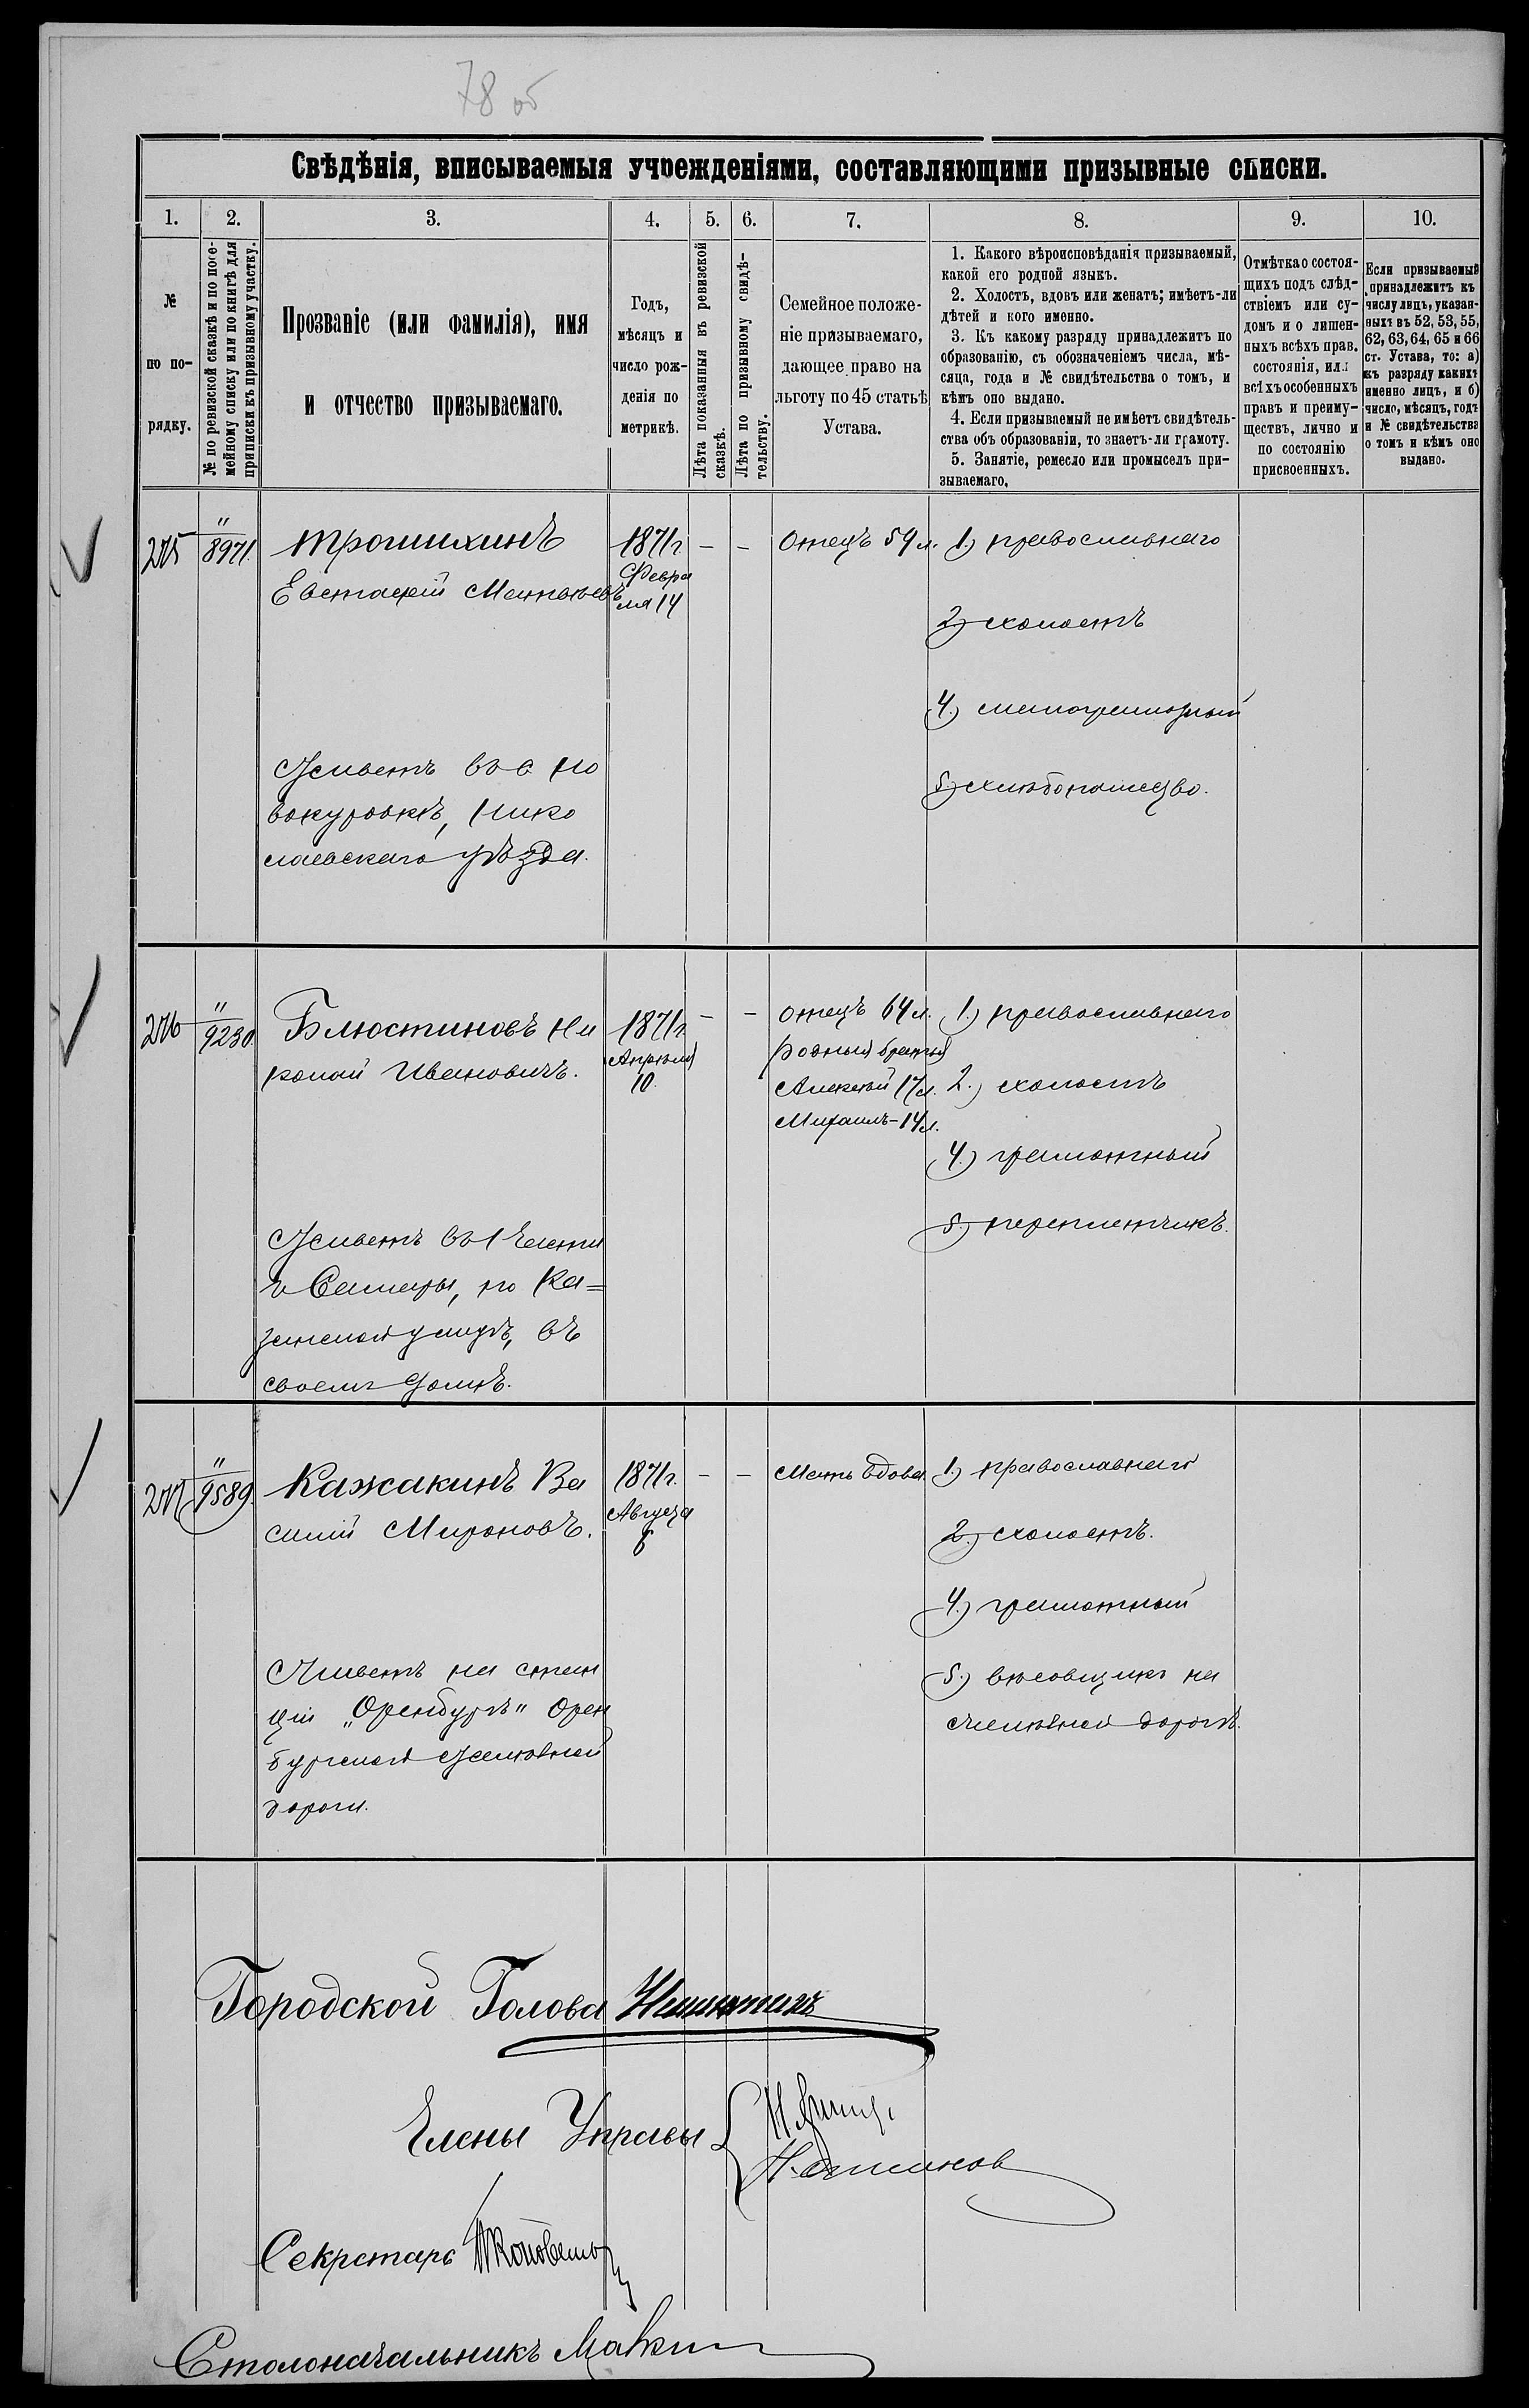 78 об
Свѣдѣнія, вписываемыя учрежденіями, составляющими призывные списки.
1. 2. 3. 4. 5. 6. 7. 8. 9. 10.
№
по по-
рядку.
№ по ревизской сказкѣ и по посе-
мейному списку или по книгѣ для
приписки къ призывному участку.
Прозваніе (или фамилія), имя
и отчество призываемаго.
Годъ,
мѣсяцъ и
число рож-
денія по
метрикѣ.
Лѣта показанныя въ ревизской
сказкѣ.
Лѣта по призывному свидѣ-
тельству.
Семейное положе-
ніе призываемаго,
дающее право на
льготу по 45 статьѣ
Устава.
1. Какого вѣроисповѣданія призываемый,
какой его родной языкъ.
2. Холостъ, вдовъ или женатъ; имѣетъ-ли
дѣтей и кого именно.
3. Къ какому разряду принадлежитъ по
образованію, съ обозначеніемъ числа, мѣ-
сяца, года и № свидѣтельства о томъ, и
кѣмъ оно выдано.
4. Если призываемый не имѣетъ свидѣтель-
ства объ образованіи, то знаетъ-ли грамоту.
5. Занятіе, ремесло или промыселъ при-
зываемаго.
Отмѣтка о состоя-
щихъ подъ слѣд-
ствіемъ или су-
домъ и о лишен-
ныхъ всѣхъ прав.
состоянія, или
всѣхъ особенныхъ
правъ и преиму-
ществъ, лично и
по состоянію
присвоенныхъ.
Если призываемый
принадлежитъ къ
числу лицъ, указан-
ныхъ въ 52, 53, 55,
62, 63, 64, 65 и 66
ст. Устава, то: а)
къ разряду какихъ
именно лицъ, и б)
число, мѣсяцъ, годъ
и № свидѣтельства
о томъ и кѣмъ оно
выдано.
275 " 8971. Трошихинъ 1871 г – – Отецъ 59 л. 1.) православнаго
Евстафій Матвѣевъ Февра
ля 14
2.) холостъ
4.) малограмотный
Живетъ въ с Но
5.) хлѣбопашество.
вокуровкѣ, Нико
лаевскаго уѣзда.
276 " 9230. Блюстиновъ Ни 1871 г. – – отецъ 64 л. 1.) православнаго
колай Ивановичъ. Апрѣля
10.
родныя братья
Алексѣй 17 л. 2.) холостъ
Михаилъ – 14 л.
4.) грамотный
5.) переплетчикъ.
Живетъ въ 1 части
г Самары, по Ка=
занской улицѣ, въ
своемъ домѣ.
277 " 9589. Кажакинъ Ва 1871 г. – – Мать вдова 1.) православнаго
силій Мироновъ. Августа
6
2.) холостъ.
4.) грамотный
Живетъ на стан 5.) вѣсовщикъ на
ціи „Оренбургъ" Орен
желѣзной дорогѣ.
бургской желѣзной
дороги.
Городской Голова
Члены Управы
Секретарь
Столоначальникъ